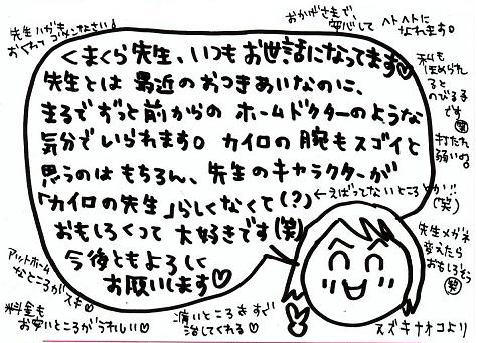 先生ハガキ
おくれて ゴメンなさい♪
おかげさまで、
安心して ヘトヘトに
なれます。
くまくら先生、いつもお世話になってます♡
先生とは 最近のおつきあいなのに、
まるでずっと前からの ホームドクターのような
気分でいられます。カイロの腕もスゴイと
思うのはもちろん、先生のキャラクターが
「カイロの先生」らしくなくて(?)
おもしろくって 大好きです(笑)
今後ともよろしく
お願いします♡
私も
ほめられ
ると
のびる子
です
(笑)
打たれ
弱いの。
←えばってないところとか!!
(笑)
先生メガネ
変えたら
おもしろそう
(笑)
アットホーム
なところが
スキ♡
料金も
お安いところがうれしい♡
痛いところをすぐ
治してくれる♡
スズキナオコより